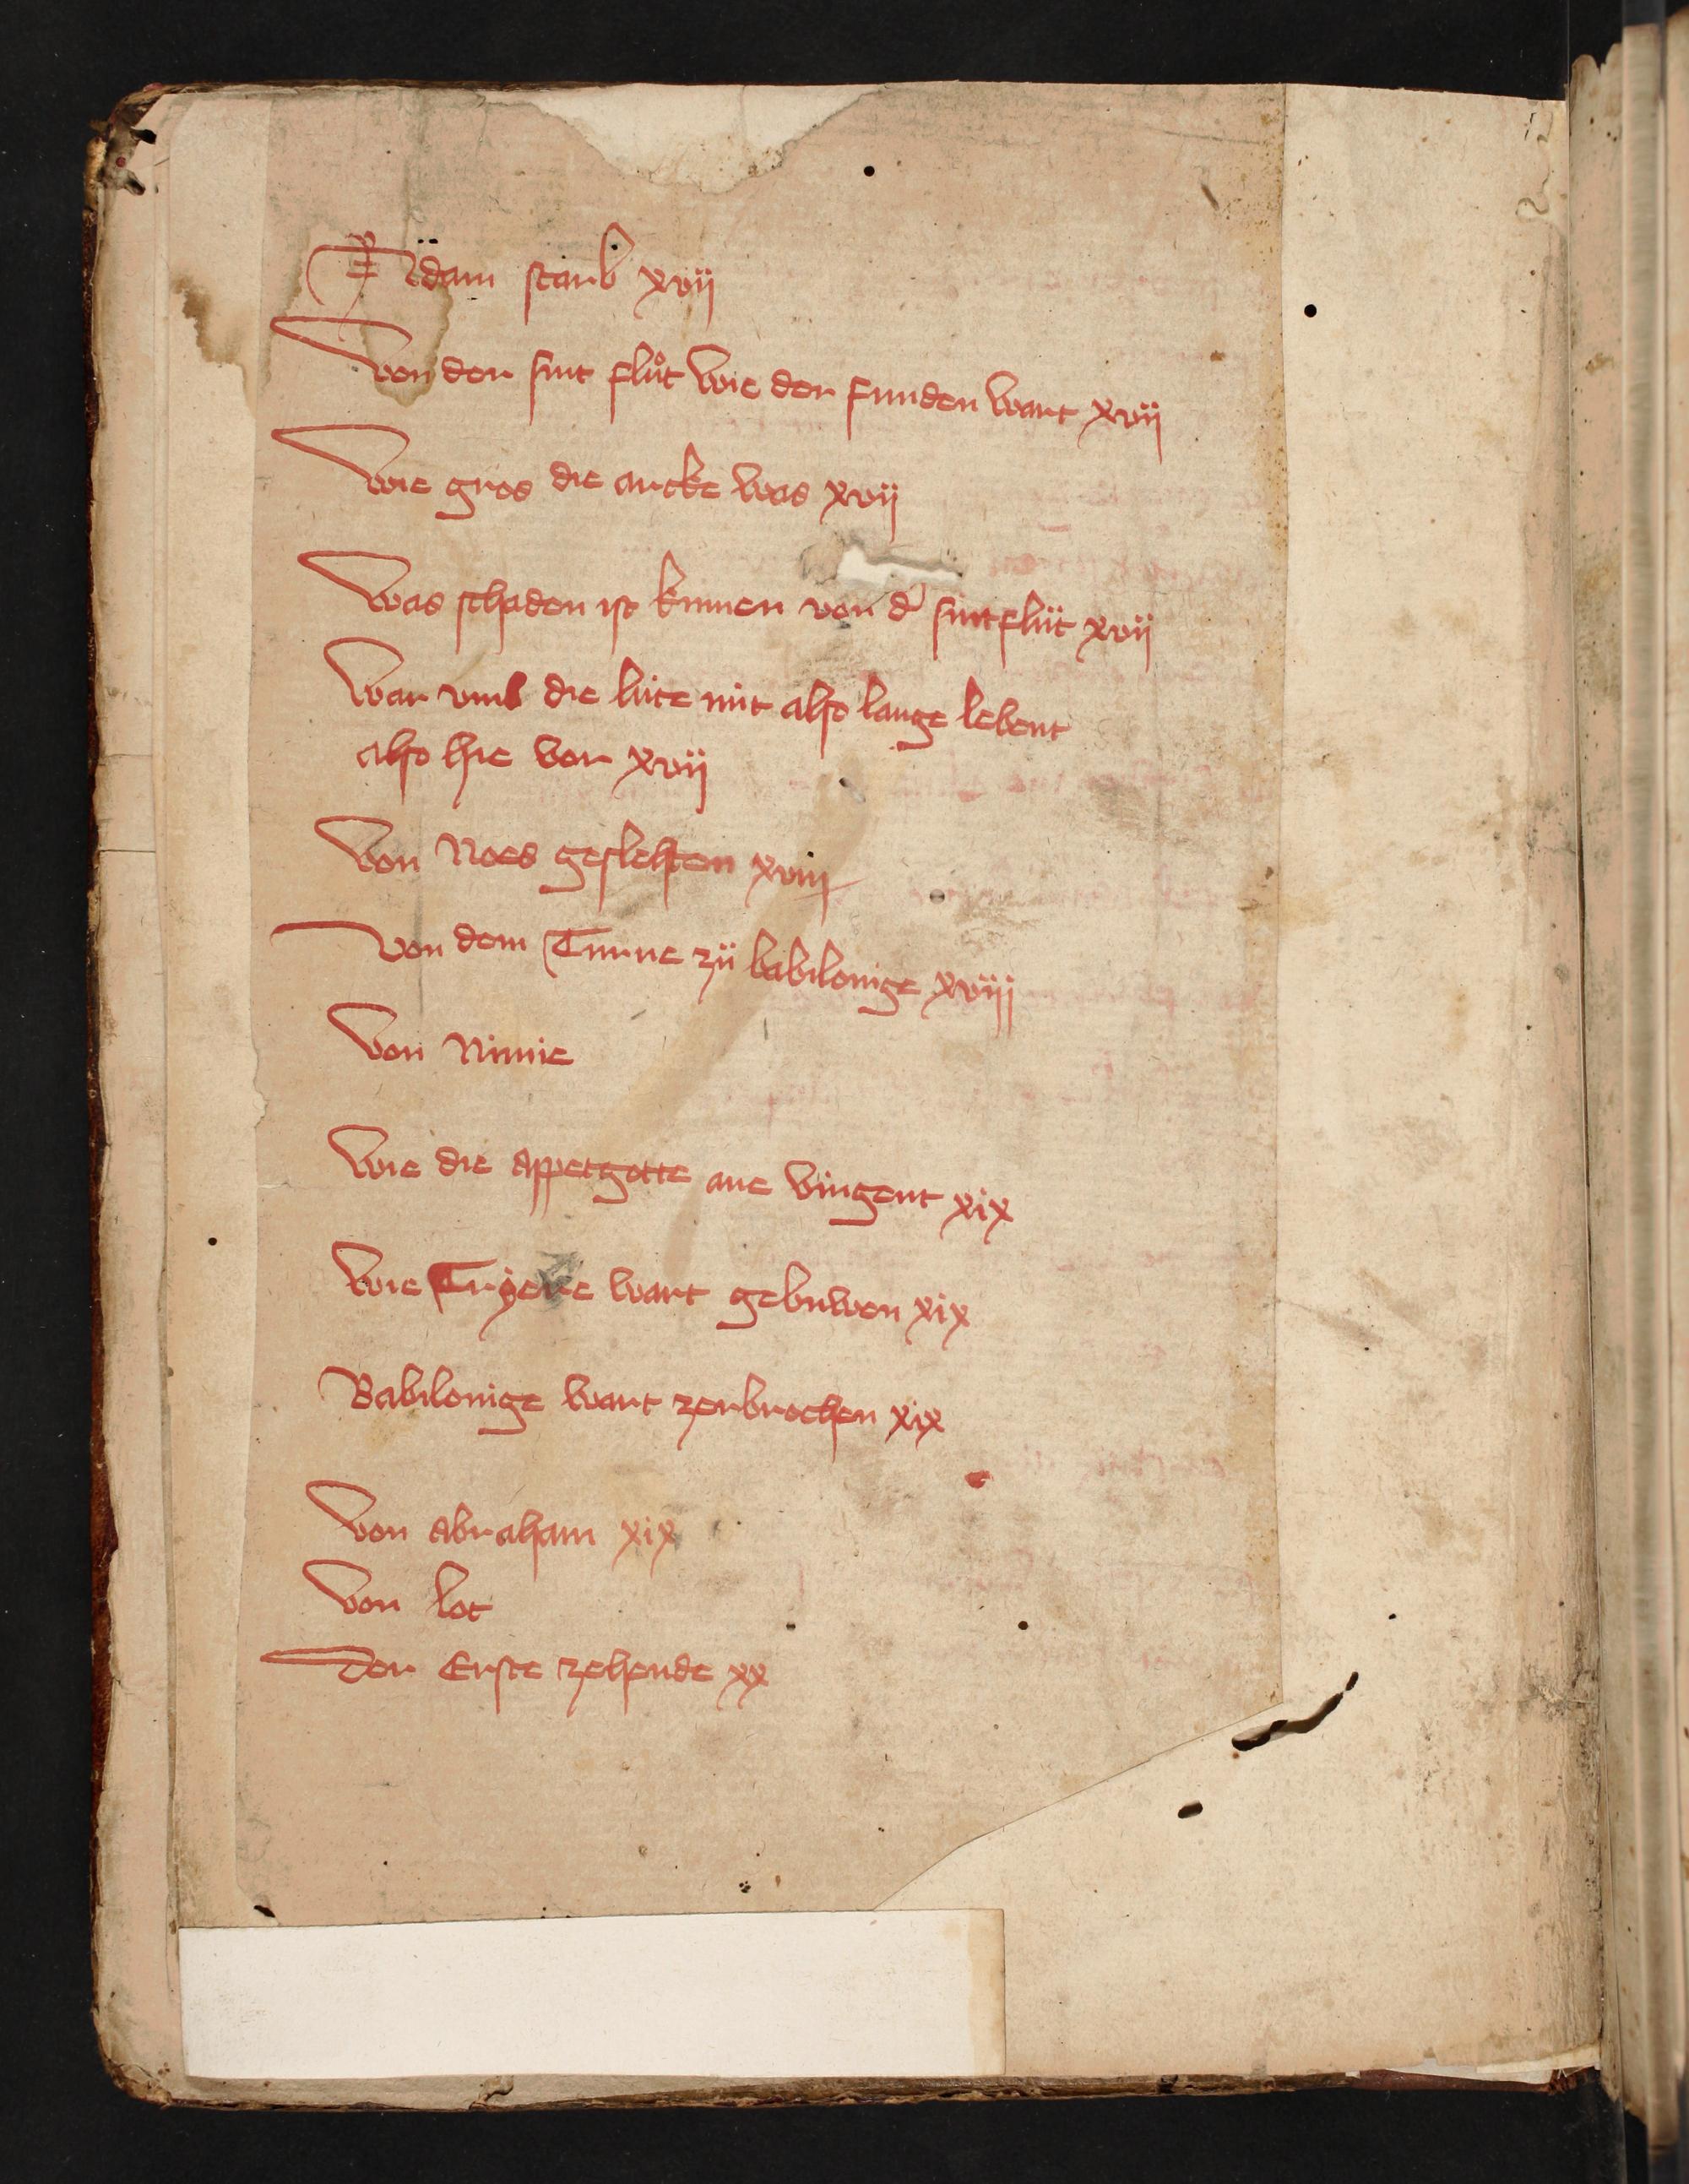 Adam starb xvij
Von der sint fluͦt wie der funden wart xvij
Wie gros die arcke was xvij
Was schaden ist kumen von d' sintflüt xvij
War vmb die lüte nüt also lange lebent
also hie vor xvij
Von Noes geslehten xviij
Von dem Turne zü babilonige xviij
Von Ninuie
Wie die appetgötte ane vingent xix
Wie wart gebuwen xix
Babilonige wart zerbrochen xix
Von abraham xix
Von lot
Der Erste zehende xx